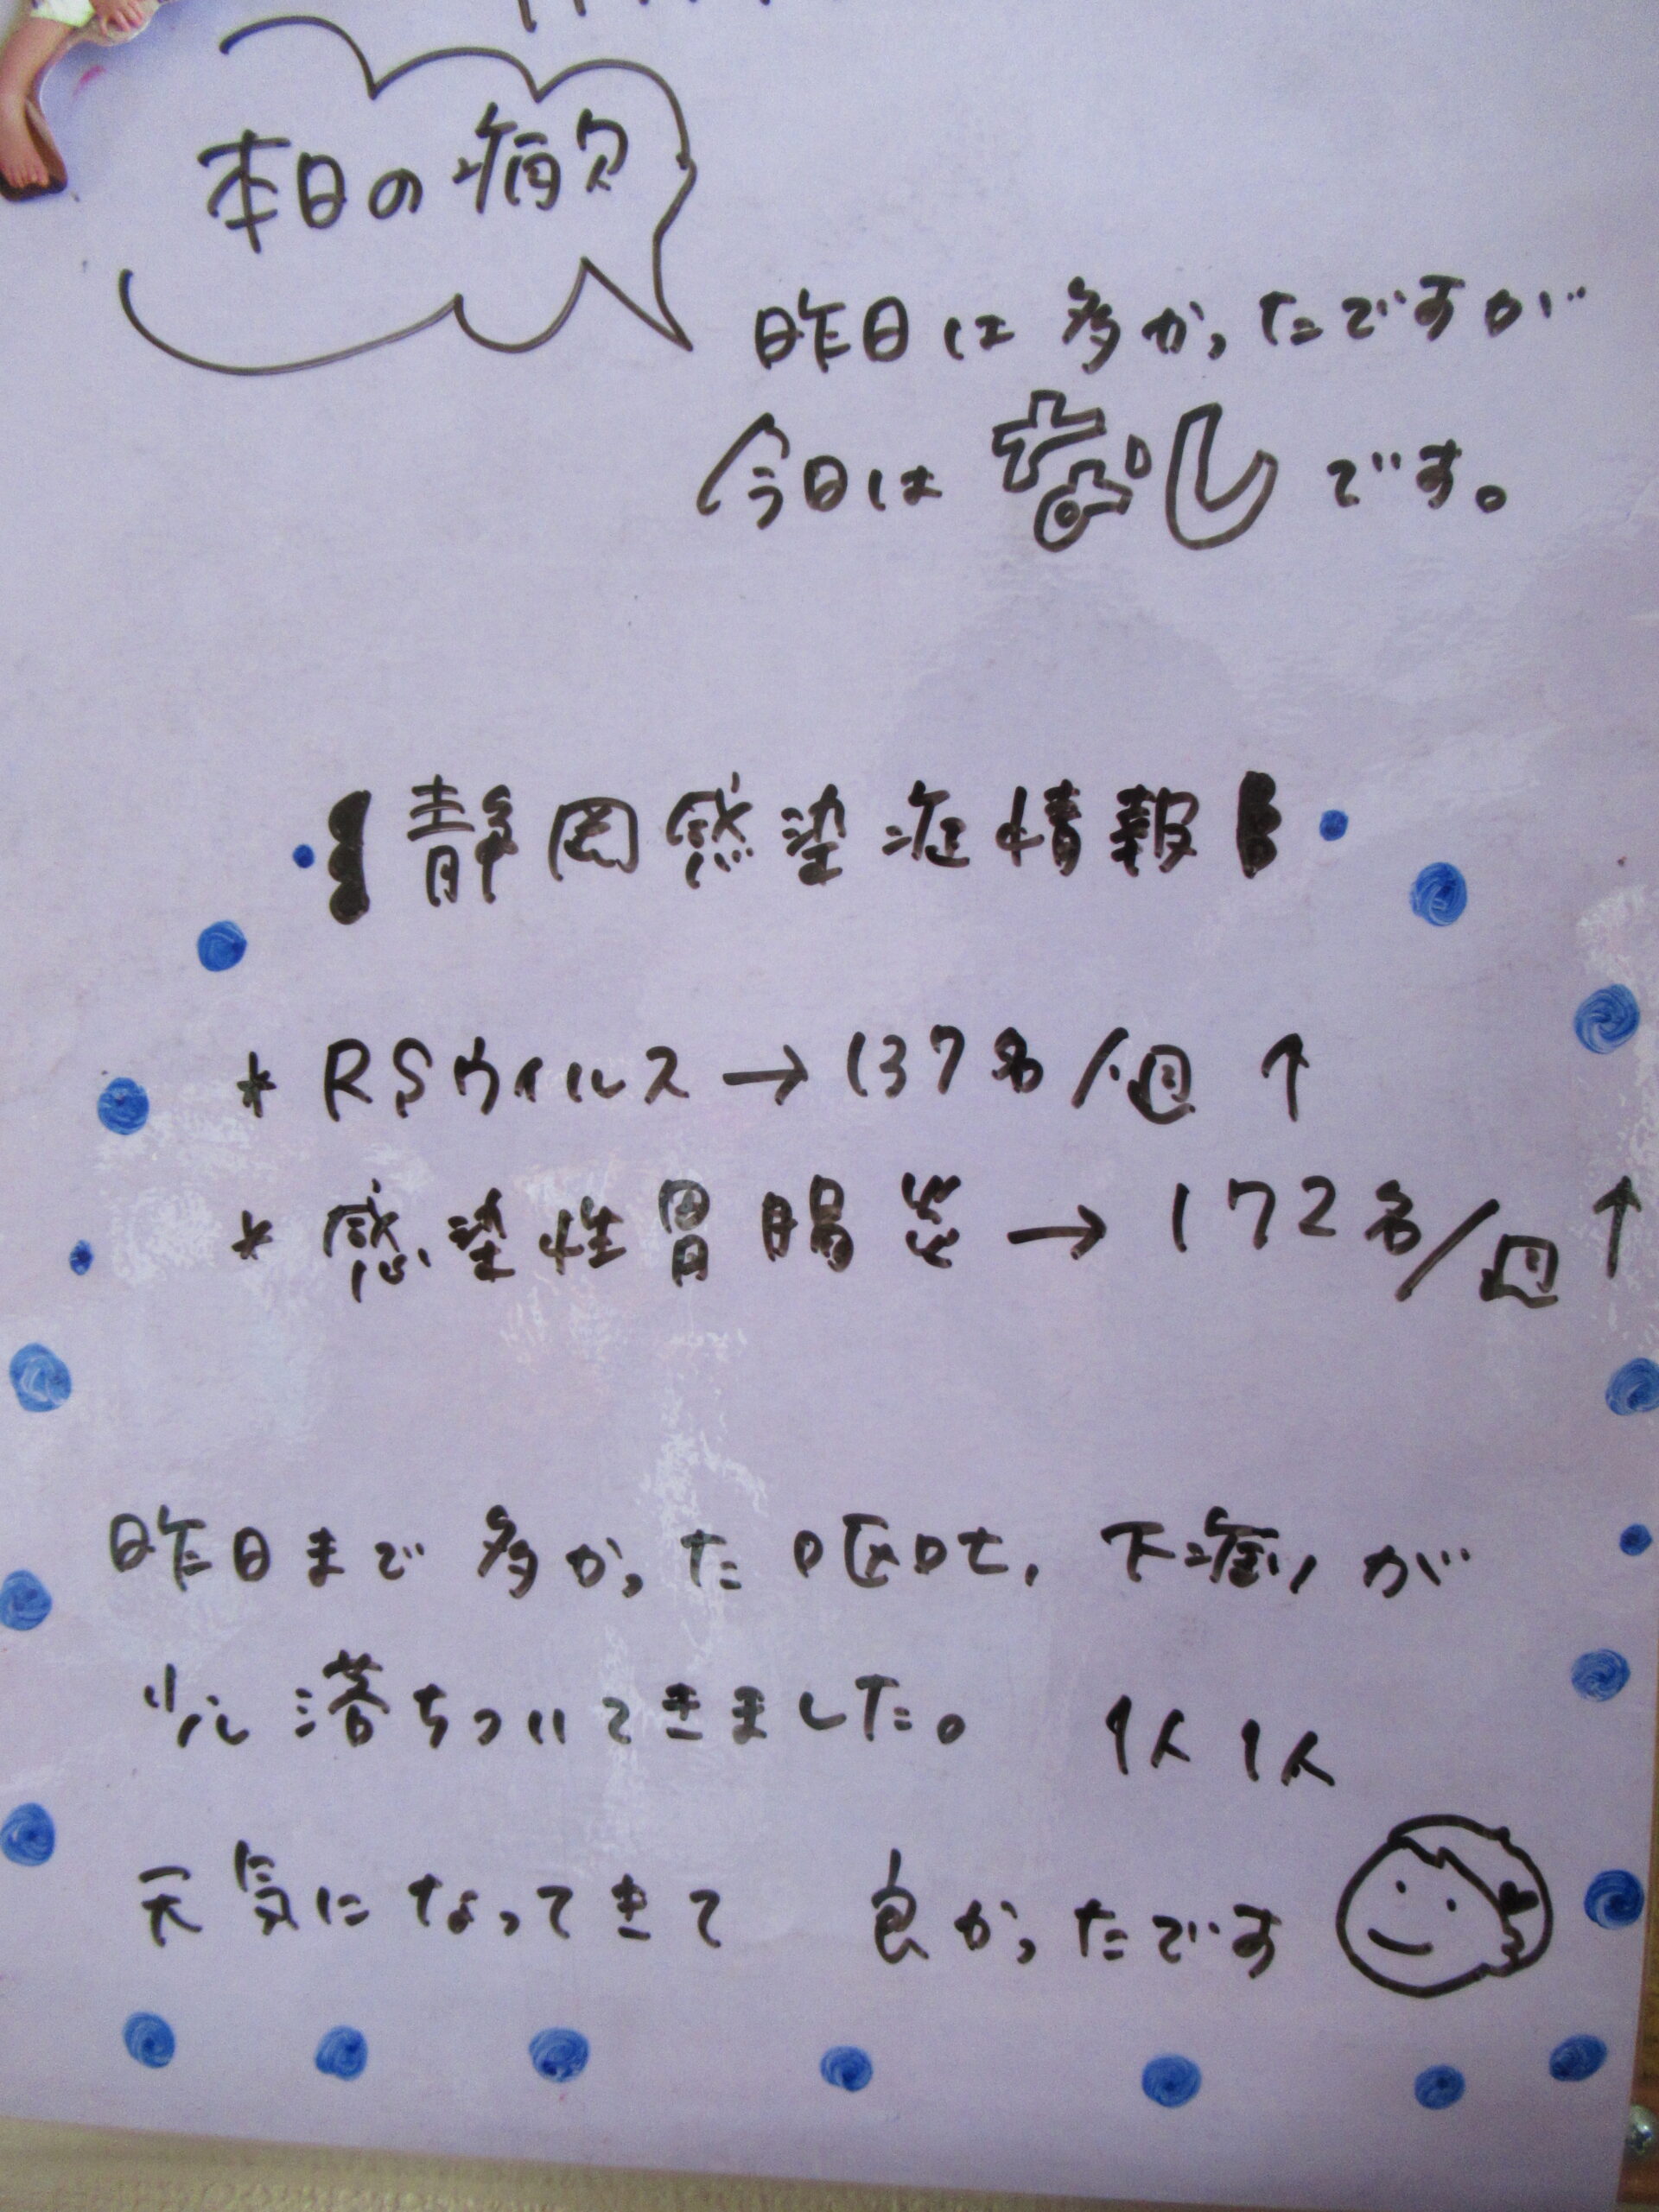 本日の病欠
昨日は多かったですが
今日はなしです。
【静岡感染症情報】
* RSウイルス→137名/週 ↑
* 感染性胃腸炎→172名/週 ↑
昨日まで多かった嘔吐,下痢が
少し落ちついてきました。 1人1人
天気になってきて 良かったです